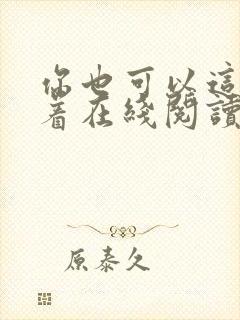 你也可以這
着在綫閱讀
原泰久